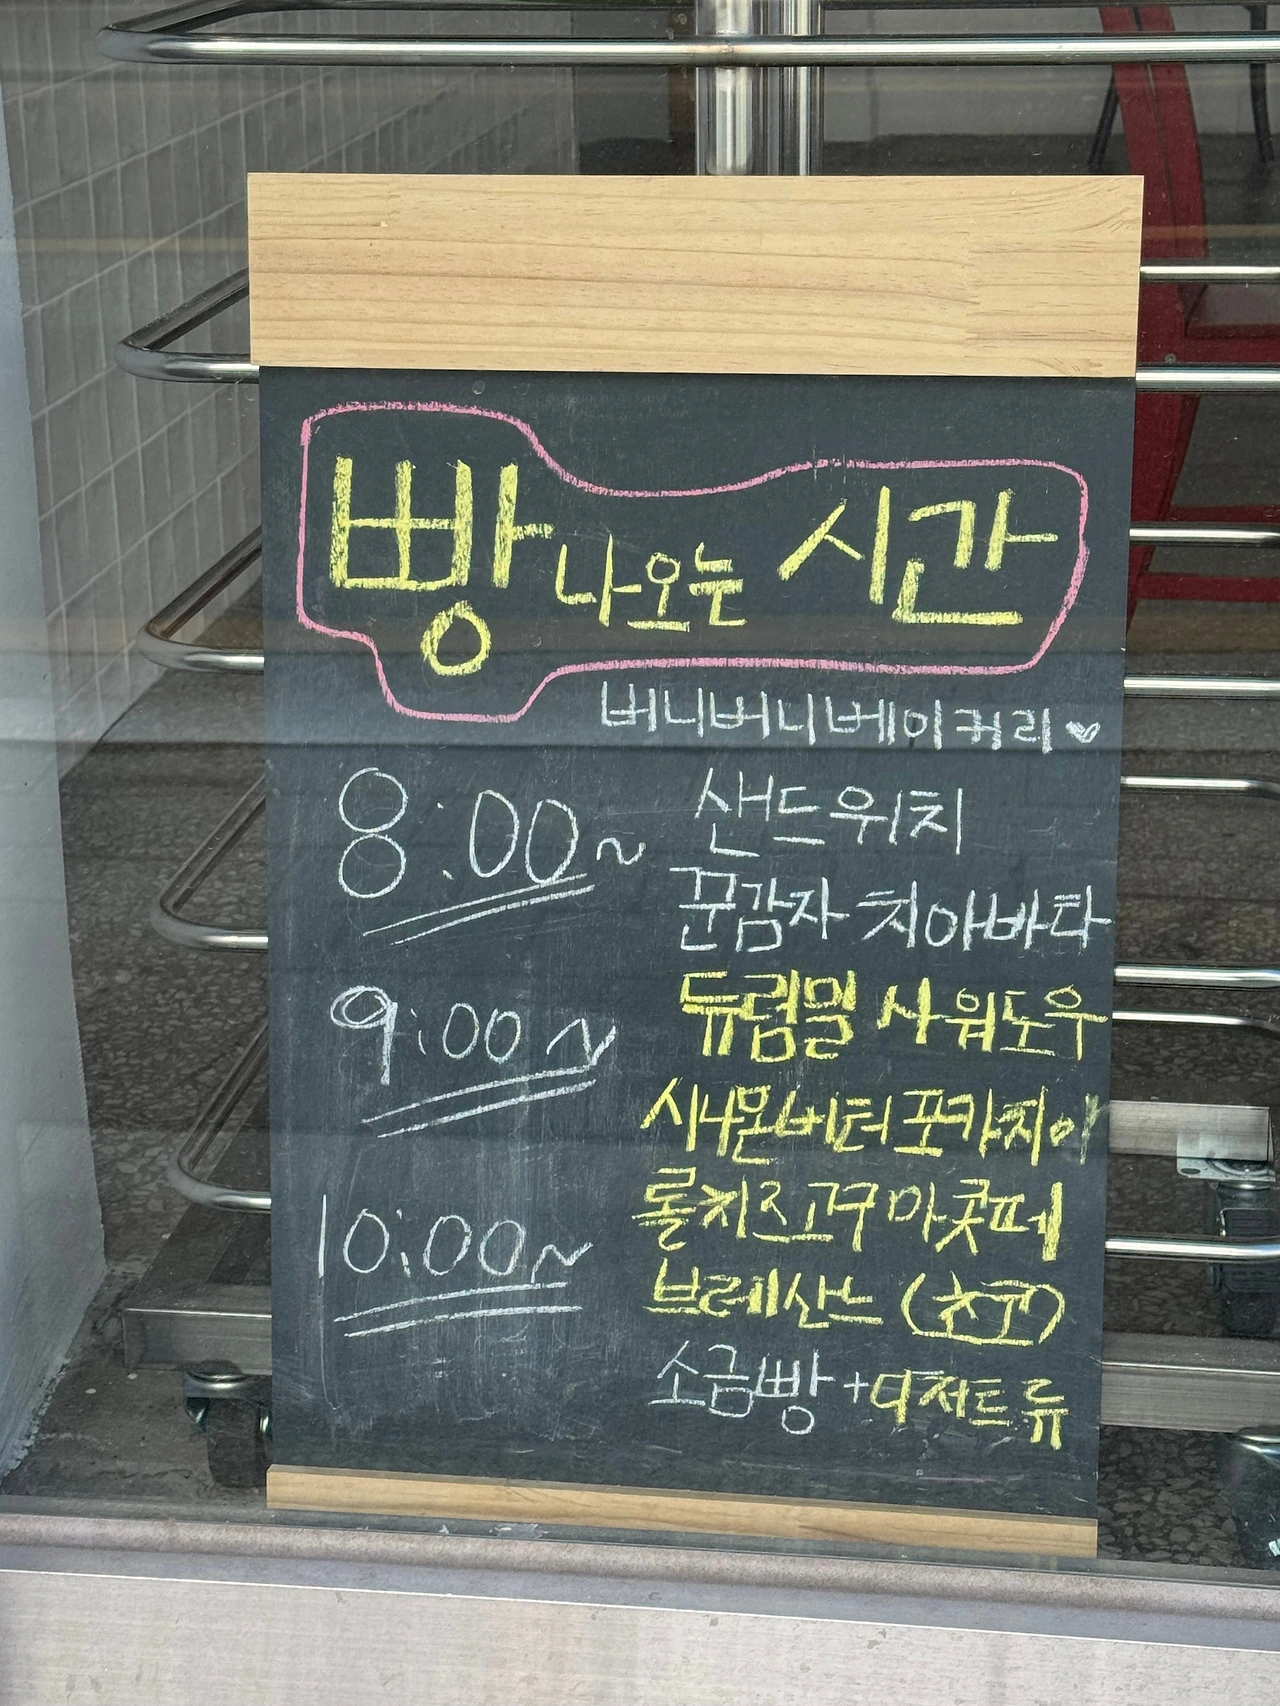 빵 나오는 시간
버니버니베이커리♥
8:00~ 샌드위치
꾼감자 치아바타
9:00~ 듀럼밀 사워도우
시나몬버터포카치아
10:00~ 롤치즈고구마콧페
브레산느 (초코)
소금빵+디저트류